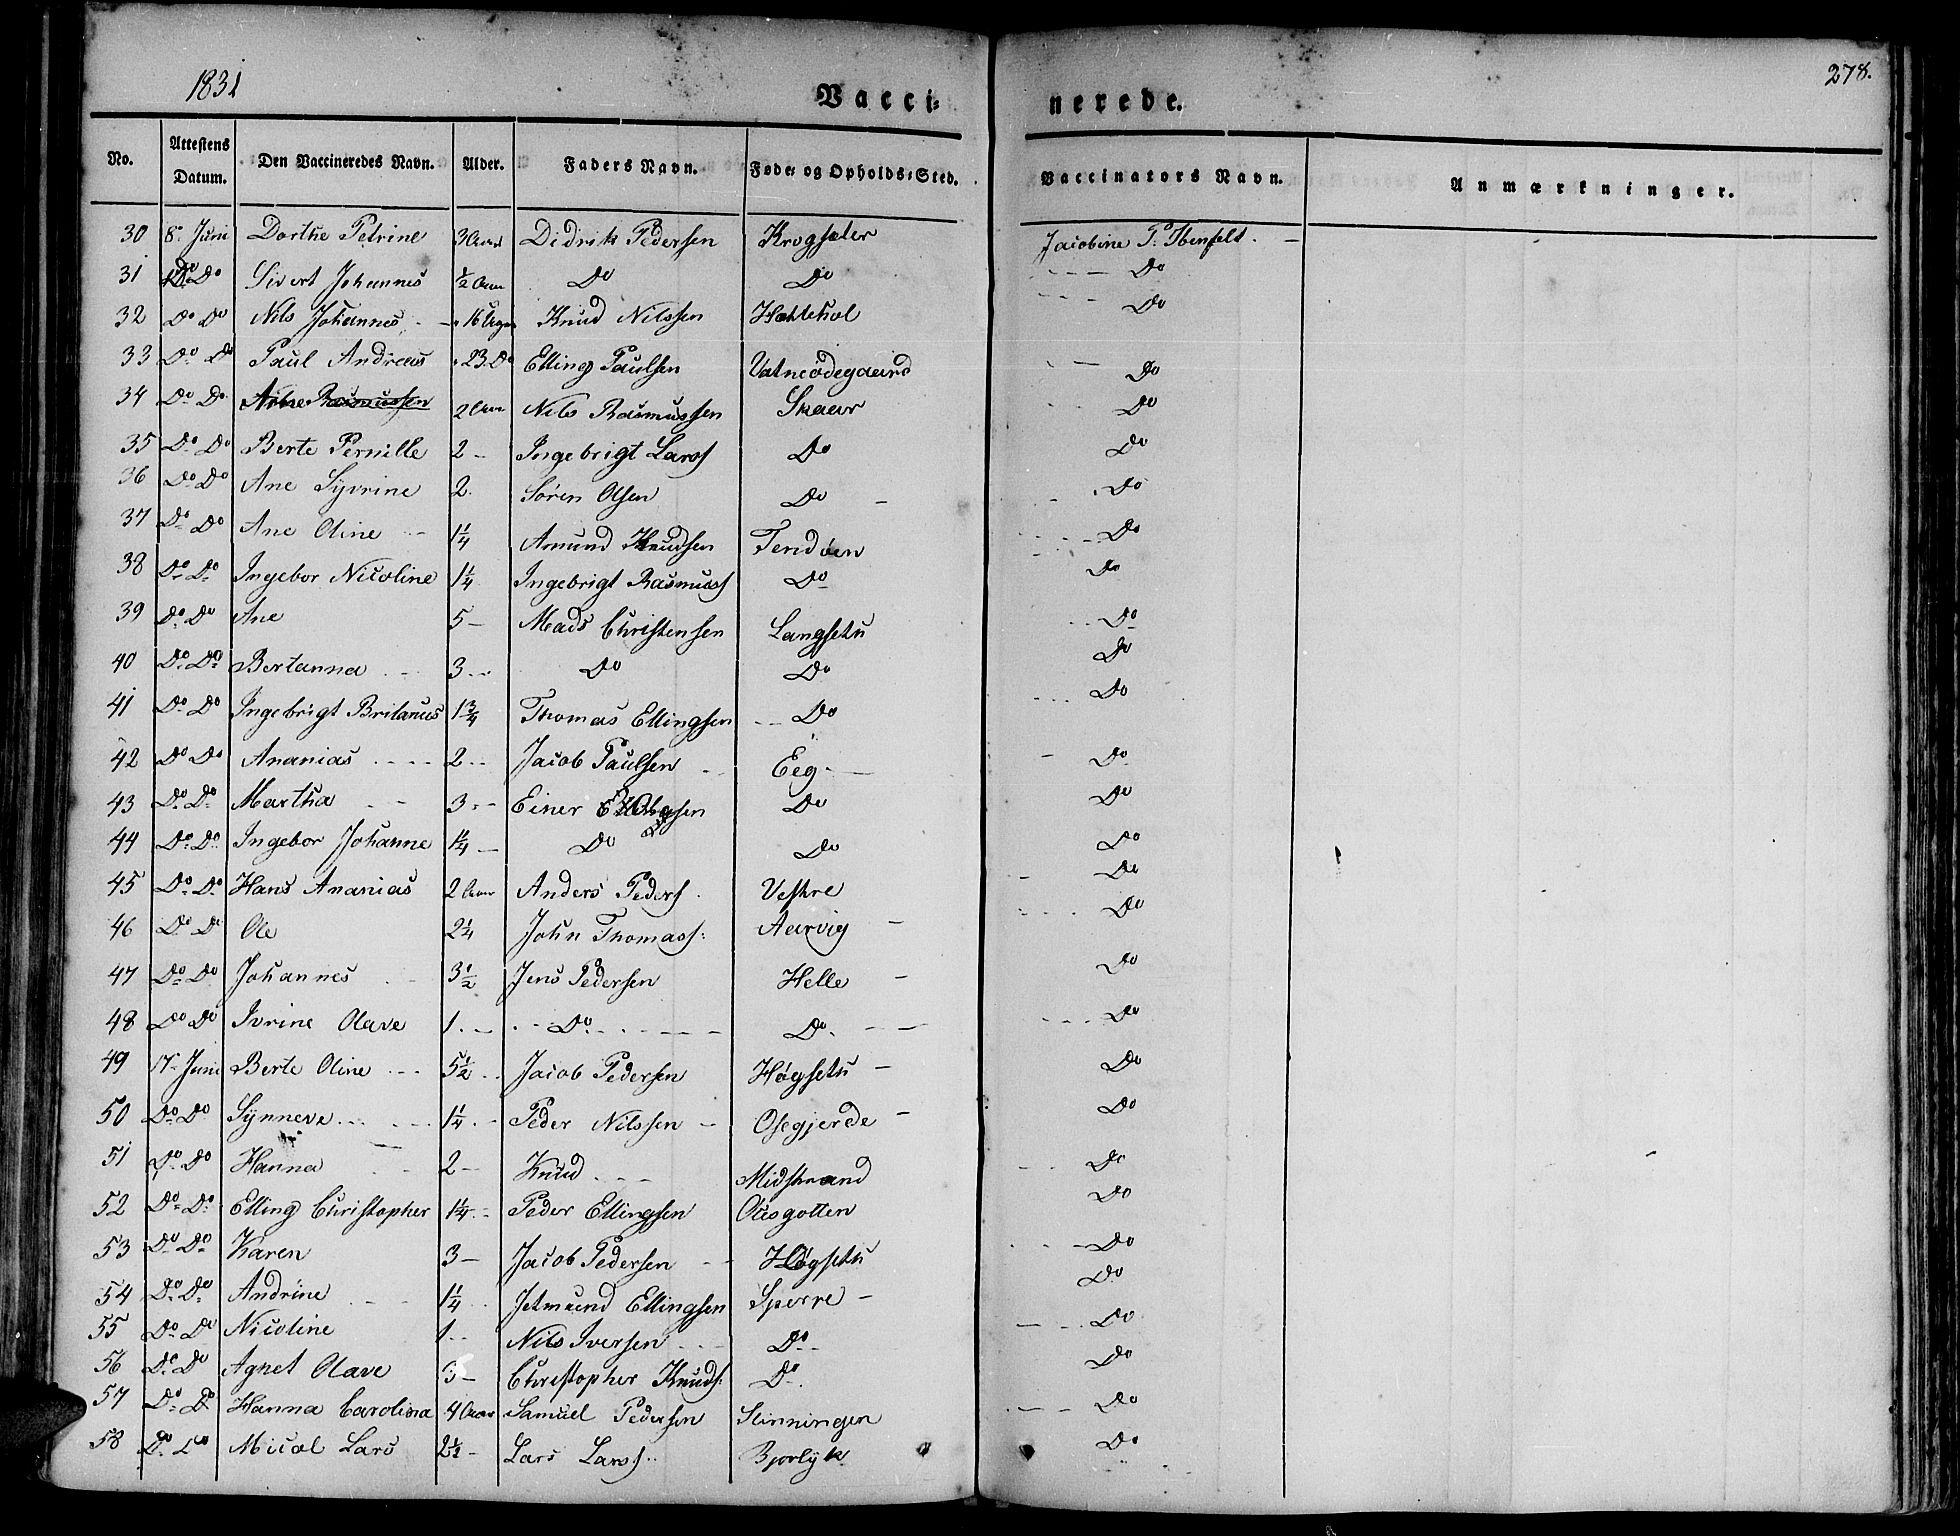 1831
278.
Vacci=
nerede.
No. Attestens Datum. Den Vaccineredes Navn. Alder. Faders Navn. Føde= og Opholds=Sted. Vaccinators Navn. Anmærkninger.
30 8de Juni Dorthe Petrine 3 Aar Didrik Pedersen Krogsæter Jacobine P.
31 Do Do Sivert Johannes ½ Aar Do Do Do
32 Do Do Nils Johannes 16 Uger Knud Nilssen Do
33 Do Do Paul Andreas 23 Do Elling Paulsen Vatneødegaard Do
34 Do Do Rasmussen 2 Aar Nils Rasmussen Skaar Do
35 Do Do Berte Pernille 2 Ingebrigt Larss Do Do
36 Do Do Ane Syvrine 2 Søren Olsen Do Do
37 Do Do Ane Oline 1¼ Amund Knudsen Tendøen Do
38 Do Do Ingebor Nicoline 1¼ Ingebrigt Rasmuss Do Do
39 Do Do Ane 5 Mads Christensen Langsetu Do
40 Do Do Bertanna 3 Do Do Do
41 Do Do Ingebrigt Britanus 1¾ Thomas Ellingsen Do Do
42 Do Do Ananias 2 Jacob Paulsen Eeg Do
43 Do Do Martha 3 Einer Do Do
44 Do Do Ingebor Johanne 1¼ Do Do Do
45 Do Do Hans Ananias 2 Aar Anders Peders Vestre Do
46 Do Do Ole 2¼ John Thomass: Aarvig Do
47 Do Do Johannes 3½ Jens Pedersen Helle Do
48 Do Do Ivrine Olave 1 Do Do Do
49 17de Juni Berte Oline 5½ Jacob Pedersen Høgsetu Do
50 Do Do Synneve 1¼ Peder Nilssen Osegjerde Do
51 Do Do Hanna 2 Knud Midstrand Do
52 Do Do Elling Christopher 1¼ Peder Ellingsen Do
53 Do Do Karen 3 Jacob Pedersen Høgsetu Do
54 Do Do Andrine 1¼ Jetmund Ellingsen Sperre Do
55 Do Do Nicoline 1 Nils Iversen Do Do
56 Do Do Agnet Olave 3 Christopher Knuds: Do Do
57 Do Do Hanna Carolina 4 Aar Samuel Pedersen Slinningen Do
58 Do Do Micol Lars 2½ Lars Larss: Bjorlyk Do